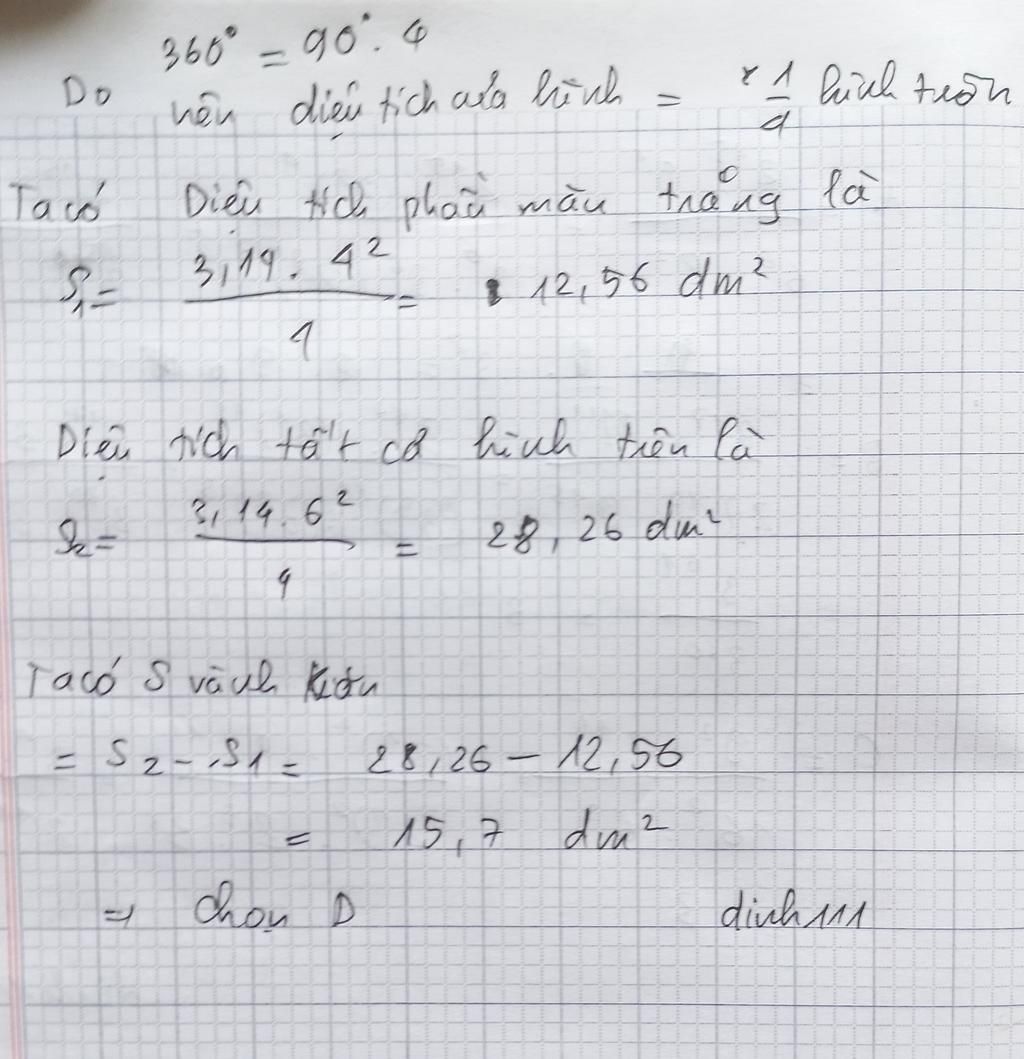 360° = 90° . 4
Do nên diện tích của hình = 1/4 hình tròn
Ta có Diện tích phần màu trắng là
S1 = 3,14 . 4² / 4 = 12,56 dm²
Diện tích tất cả hình trên là
S2 = 3,14 . 6² / 4 = 28,26 dm²
Ta có S vành
= S2 - S1 = 28,26 - 12,56
= 15,7 dm²
⇒ Chọn D dinh111